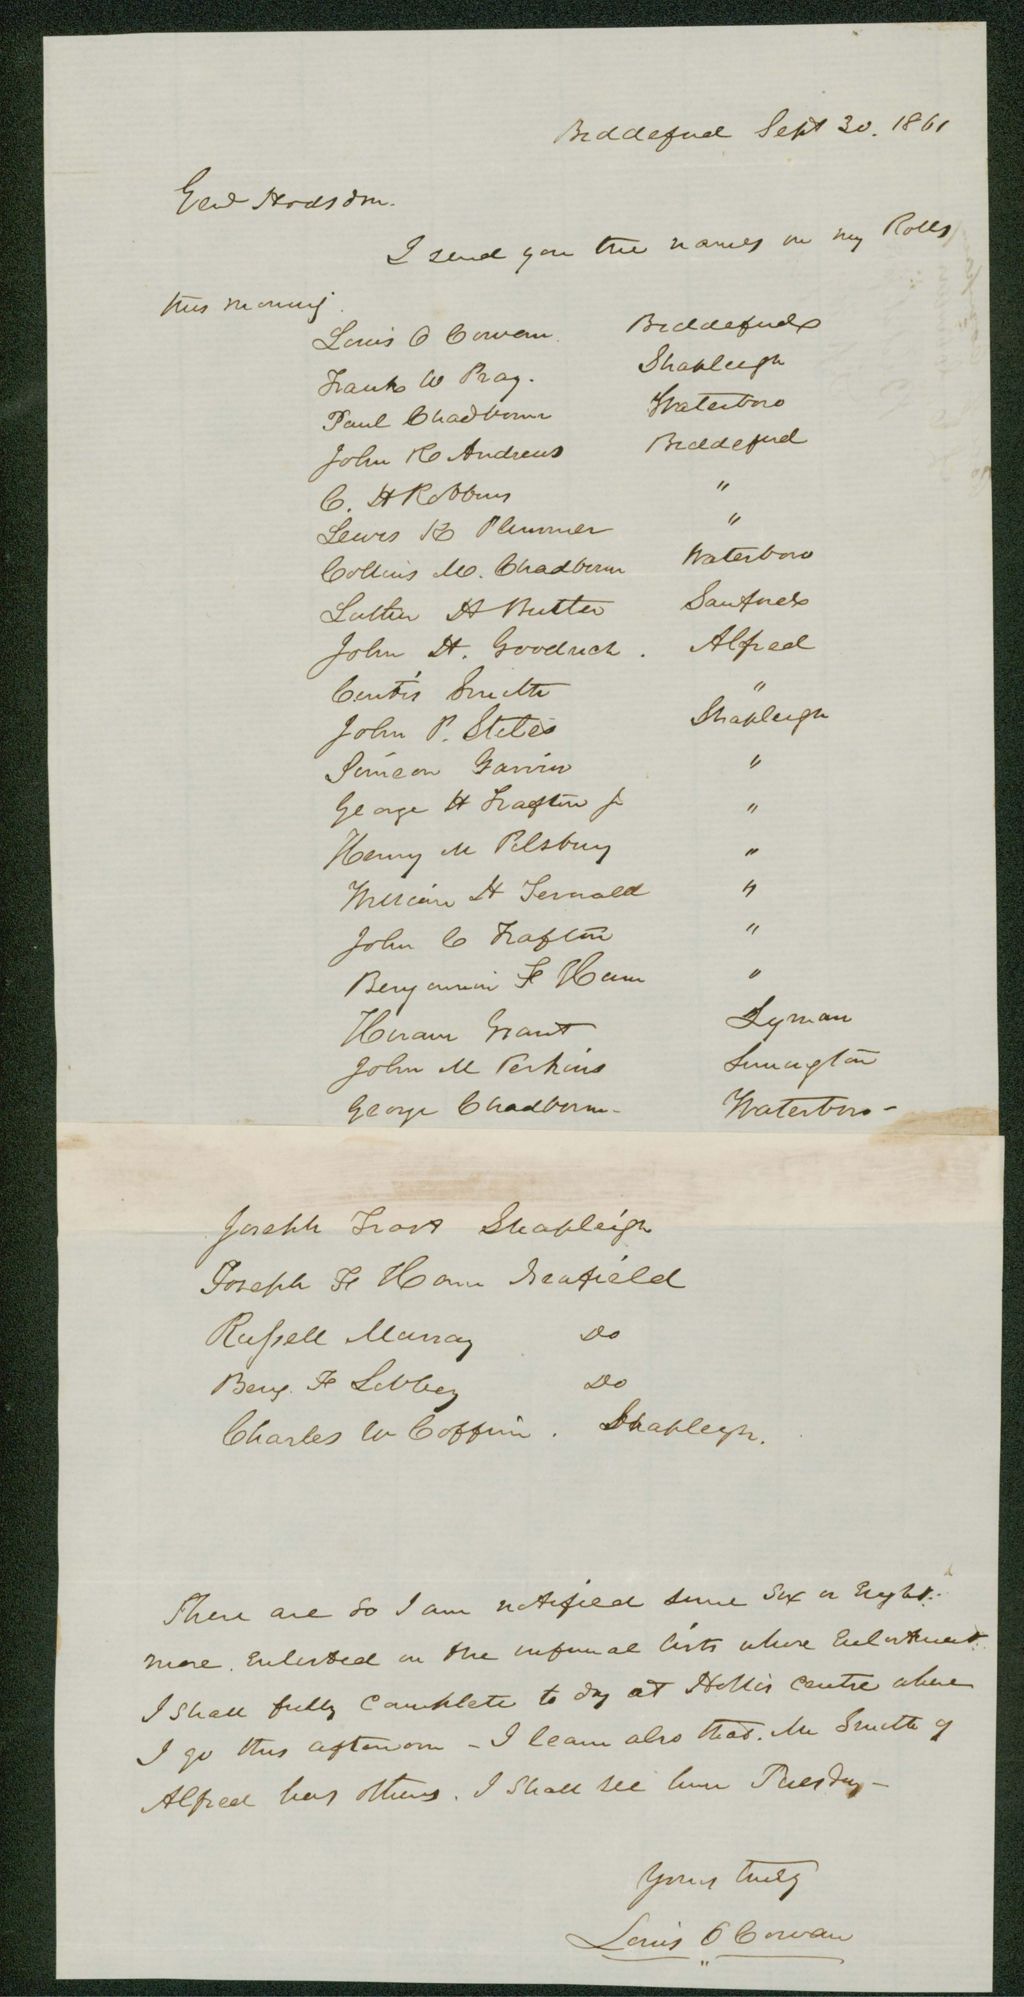 Biddeford Sept 30. 1861
Genl Hodsdon.
I send you the names on my Rolls
this morning.
Louis O Cowan. Biddeford
Frank W Pray. Shapleigh
Paul Chadbourn Waterboro
John R Andrews Biddeford
C. H Robbins "
Lewis K Plummer "
Collins M. Chadbourn Waterboro
Luther H Butler Sanford
John H. Goodrich. Alfred
Curtis Smith "
John P. Stiles Shapleigh
Simeon Garvin "
George H Trafton Jr "
Henry M Pilsbury "
William H Fernald "
John C Trafton "
Benjamin F Ham "
Hiram Grant Lyman
John M Perkins Limington
George Chadbourn - Waterboro -
Joseph Frost Shapleigh
Joseph F Ham Newfield
Russell Murray Do
Benj. F Libbey Do
Charles W Coffin. Shapleigh.
There are so I am notified some Six or Eight
more. Enlisted on the informal lists whose Enlistment
I shall fully complete to day at Hollis centre where
I go this afternoon - I learn also that. Mr Smith of
Alfred has others. I shall see him Tuesday -
Yours truly
Louis O Cowan